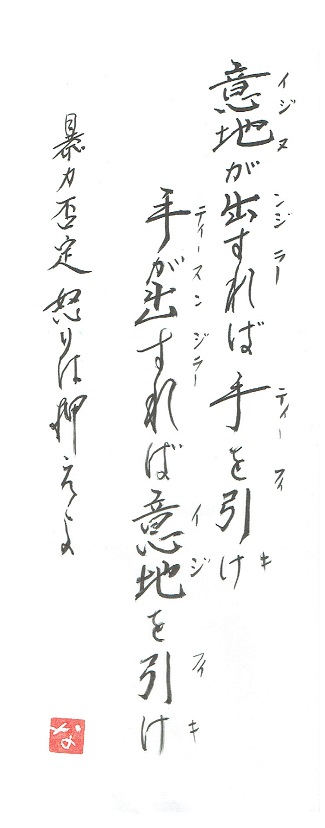 意地が出すれば手を引け
イジヌ ンジラー ティー フィキ
手が出すれば意地を引け
ティースンジラー イジ フィキ
暴力否定 怒りは押えよ
な